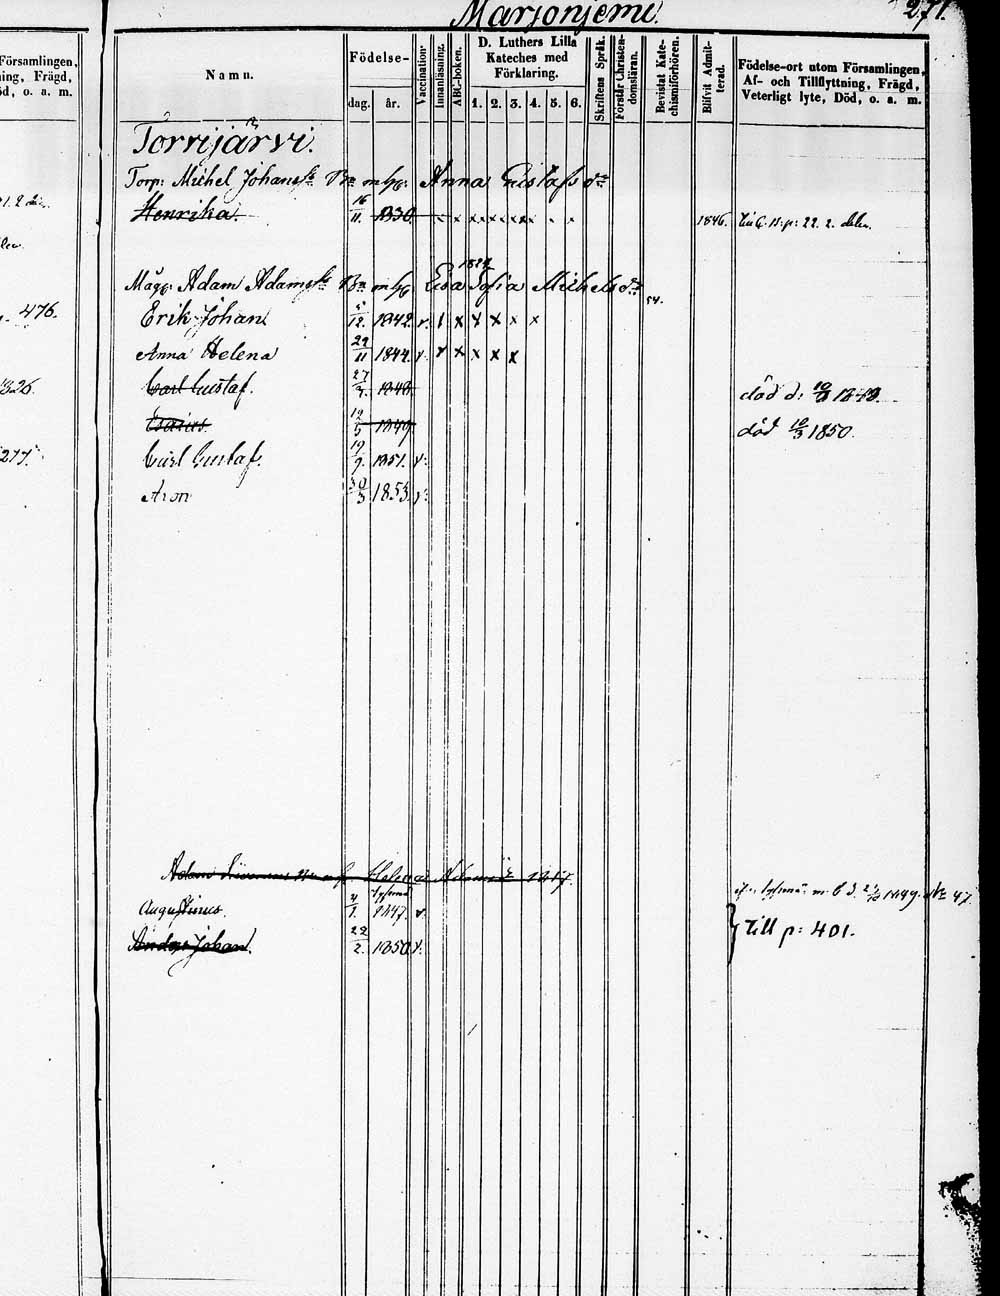 Marjonjemi.
271.
Församlingen,
ning, Frägd,
öd, o. a. m.
476.
326.
277.
Namn.
Födelse-
dag. år.
Vaccination.
Innanläsning.
ABC-boken.
D. Luthers Lilla
Kateches med
Förklaring.
1. 2. 3. 4. 5. 6.
Skriftens Språk.
Förstår Christen-
domsläran.
Bevistat Kate-
chismiförhören.
Blifvit Admit-
terad.
Födelse-ort utom Församlingen,
Af- och Tillflyttning, Frägd,
Veterligt lyte, Död, o. a. m.
Torrijärvi.
Torp: Michel Johans sn Bn m h: Anna Gustafs dr
Henrika. 16/11. 1830. x x x x x x 1846. 22. 2. delen.
1824
Måg: Adam Adams sn Bn m h Eva Sofia Michels dr
54.
Erik Johan 5/12. 1842. v. x x x x x
Anna Helena 29/11 1844. v. x x x x x
Carl Gustaf. 27/3. 1848. död d: 10/3 1848.
Esaias. 12/5 1849. död 10/3 1850.
Carl Gustaf. 19/9. 1851. v.
Aron 30/3 1853. v.
Adam Helena Adamsdr
Augustinus. 4/1. 1847. v. 1849. No 47.
Anders Johan. 22/2. 1850. v. } till p: 401.